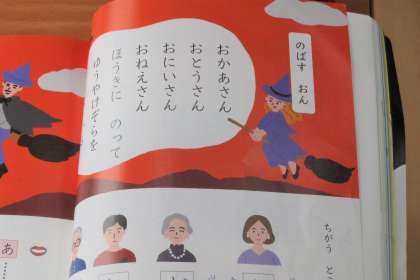 のばす おん
おかあさん
おとうさん
おにいさん
おねえさん
ほうきに のって
ゆうやけぞらを
ちがう
あ